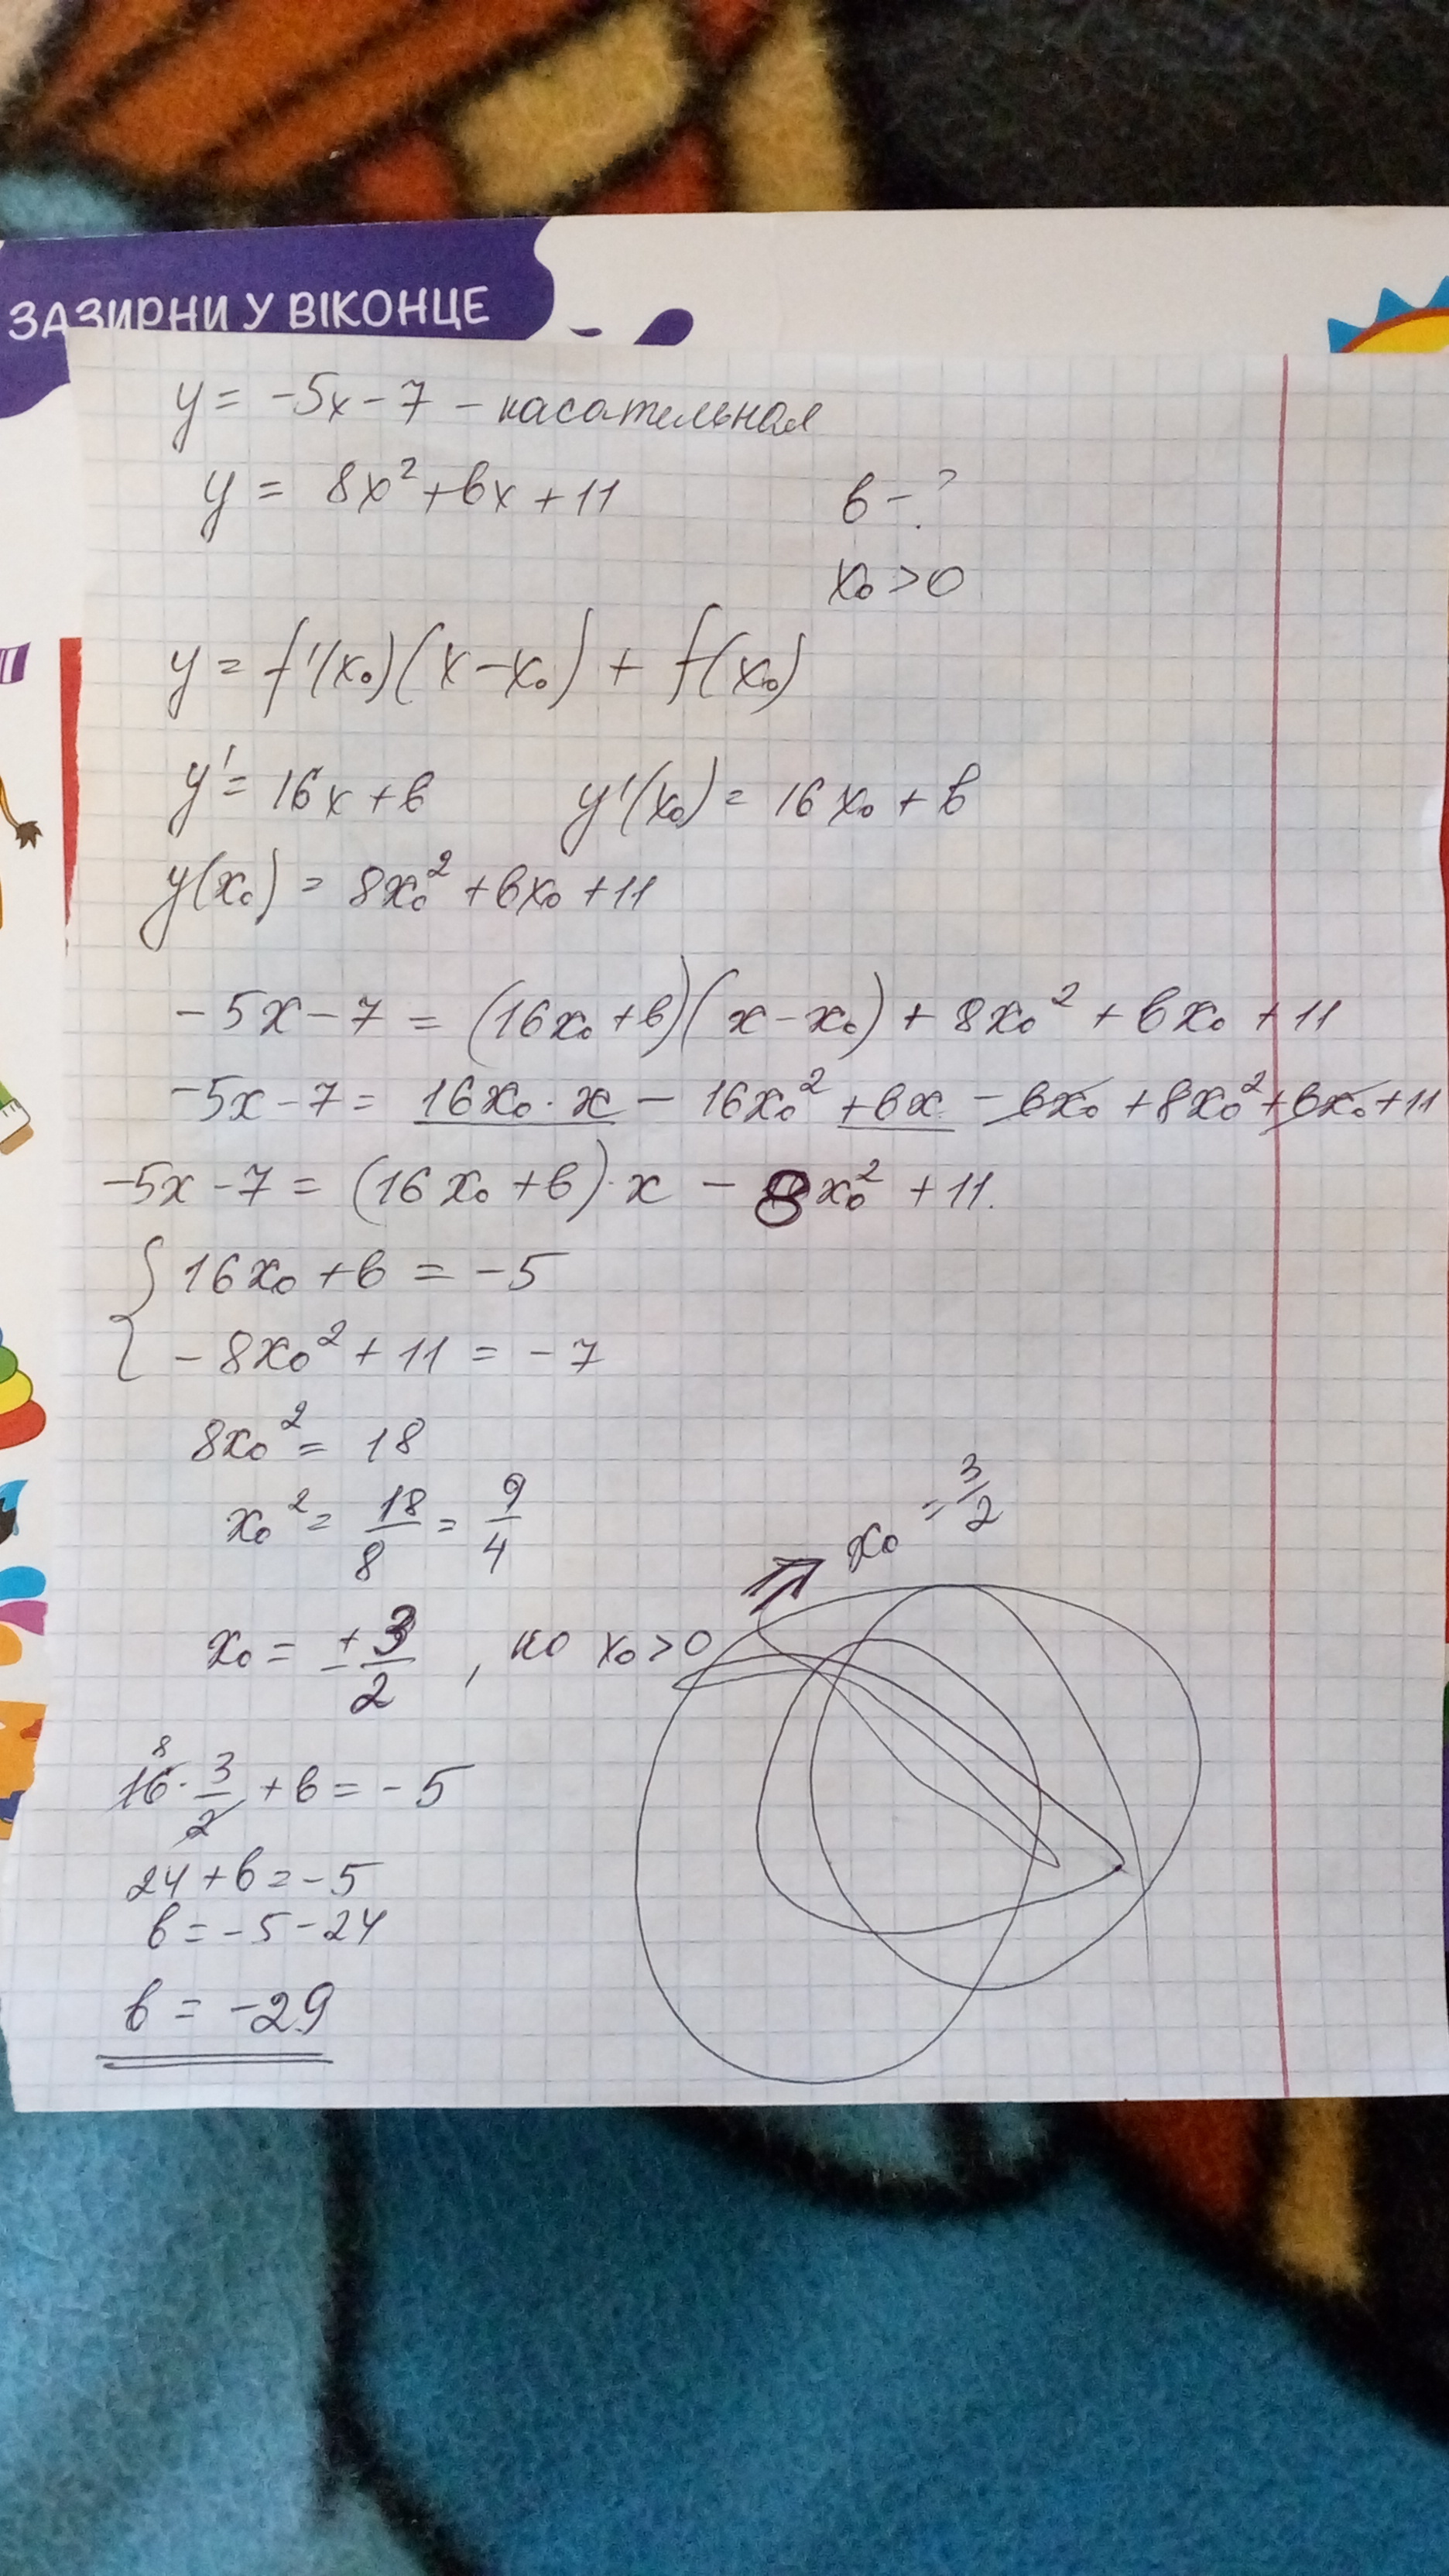 ЗАЗИРНИ У ВІКОНЦЕ
y = -5x - 7 - касательная
y = 8x² + bx + 11 b - ?
x₀ > 0
y = f'(x₀)(x - x₀) + f(x₀)
y' = 16x + b y'(x₀) = 16x₀ + b
y(x₀) = 8x₀² + bx₀ + 11
-5x - 7 = (16x₀ + b)(x - x₀) + 8x₀² + bx₀ + 11
-5x - 7 = 16x₀ · x - 16x₀² + bx - bx₀ + 8x₀² + bx₀ + 11
-5x - 7 = (16x₀ + b) · x - 8x₀² + 11.
{ 16x₀ + b = -5
-8x₀² + 11 = -7
8x₀² = 18
x₀² = 18/8 = 9/4
x₀ = ± 3/2 , но x₀ > 0 ⇒ x₀ = 3/2
8
16 · 3/2 + b = -5
24 + b = -5
b = -5 - 24
b = -29